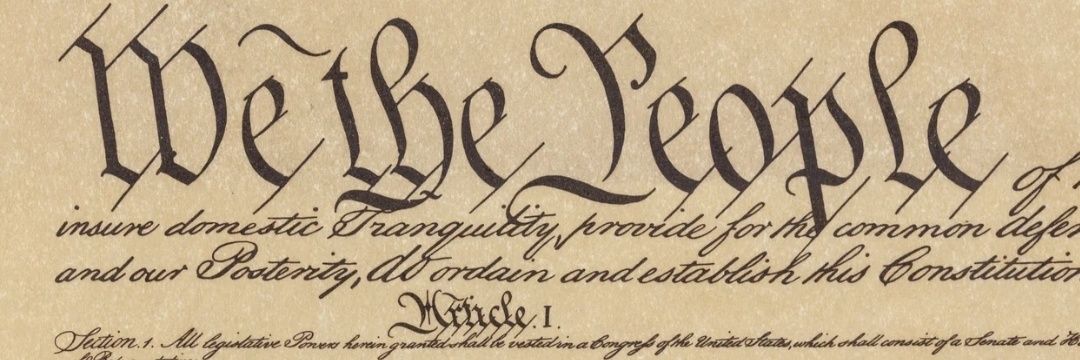 We the People of
insure domestic Tranquility, provide for the common defen
and our Posterity, do ordain and establish this Constitution
Article. I.
Section. 1. All legislative Powers herein granted shall be vested in a Congress of the United States, which shall consist of a Senate and